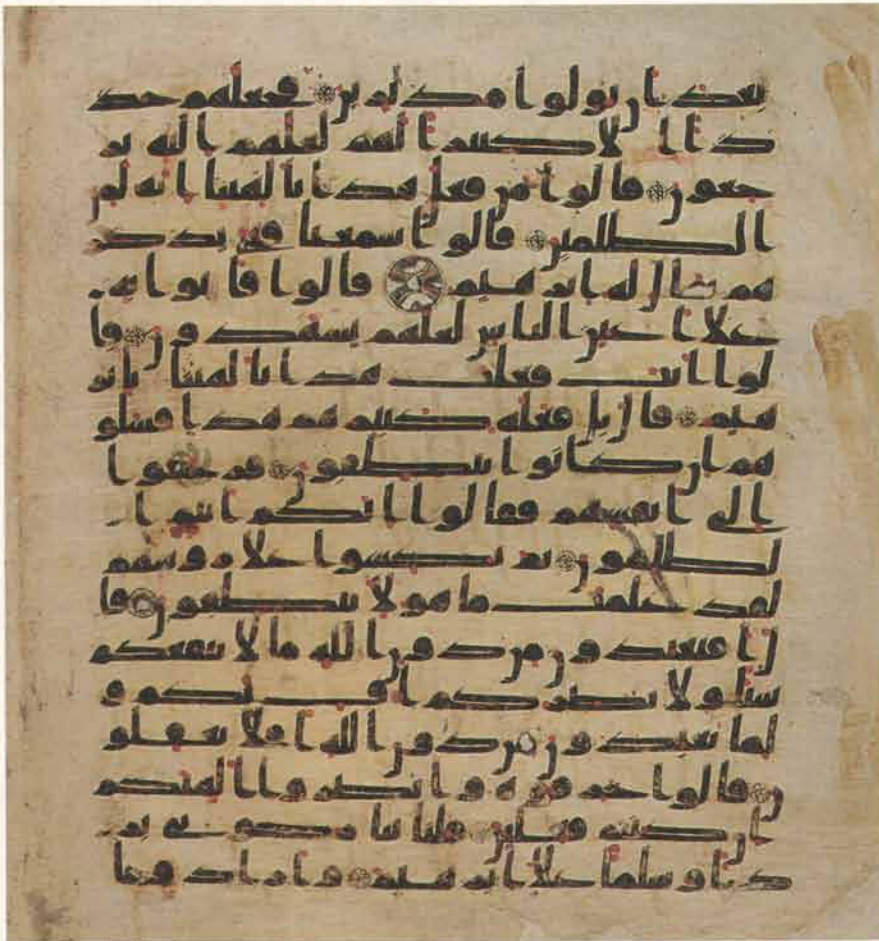 بعد ان تولوا مدبرين فجعلهم جذ
ذا الا كبيرا لهم لعلهم اليه ير
جعون قالوا من فعل هذا بالهتنا انه لمن
الظلمين قالوا سمعنا فتى يذكر
هم يقال له ابرهيم قالوا فاتوا به
على اعين الناس لعلهم يشهدون قا
لوا انت فعلت هذا بالهتنا يابر
هيم قال بل فعله كبيرهم هذا فسلو
هم ان كانوا ينطقون فرجعوا
الى انفسهم فقالوا انكم انتم ا
لظلمون ثم نكسوا على روسهم
لقد علمت ما هولا ينطقون قا
ل افتعبدون من دون الله ما لا ينفعكم
شيا ولا يضركم اف لكم و
لما تعبدون من دون الله افلا تعقلو
ن قالوا حرقوه وانصروا الهتكم
ان كنتم فعلين قلنا ينار كوني بر
دا وسلما على ابرهيم وارادوا